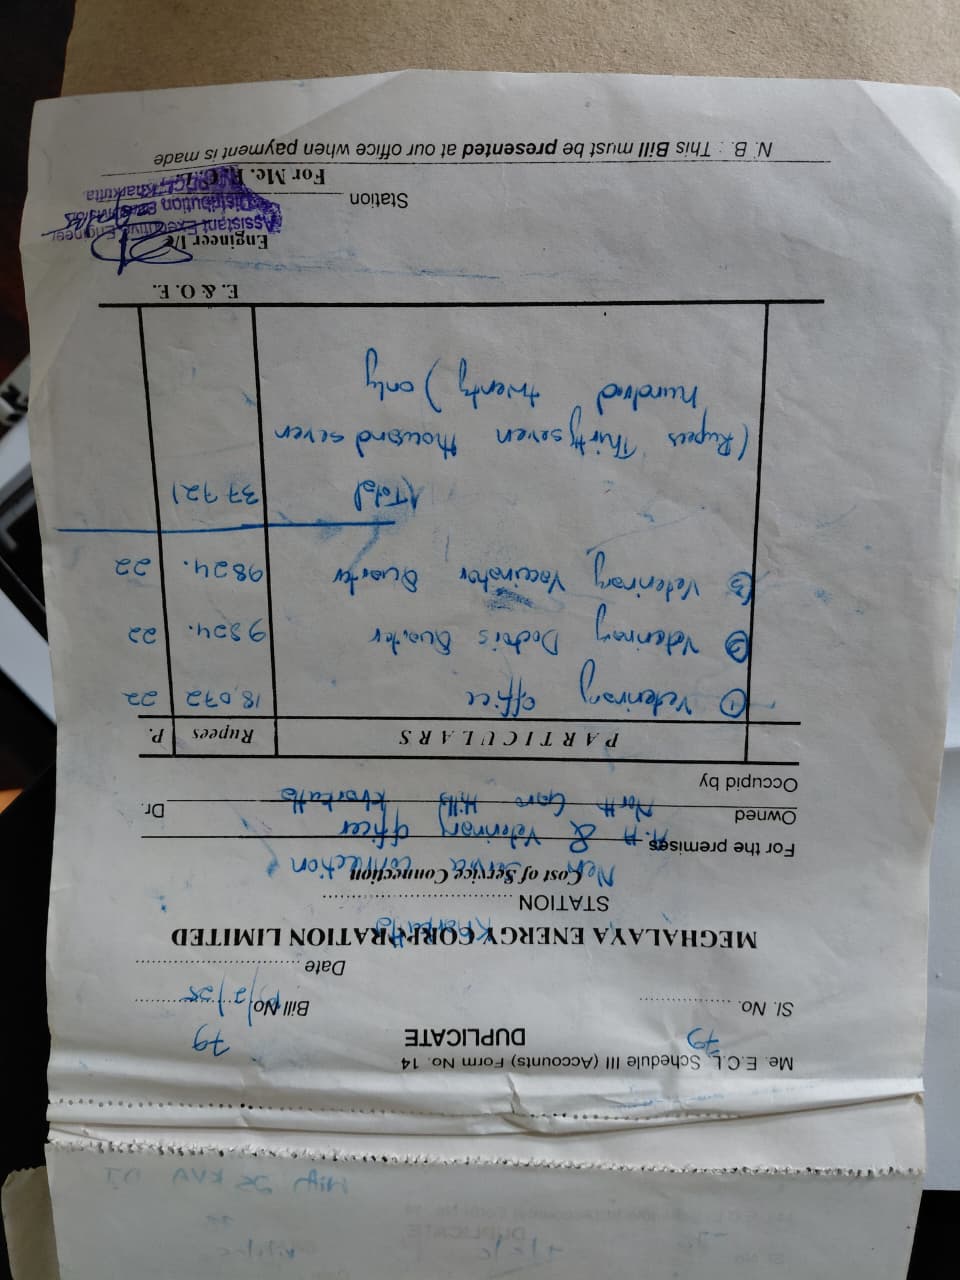 Me. E.C.L. Schedule III (Accounts) Form No. 14
79 DUPLICATE 79
Sl. No. .................. Bill No. ..................
Date ..................
MEGHALAYA ENERGY CORPORATION LIMITED
Kharkutta
STATION ..................
Cost of Service Connection
New Service Connection
For the premises A.H & Veterinary Officer
Owned North Garo Hills Kharkutta Dr.
Occupid by
PARTICULARS Rupees P.
① Veterinary office 18,072 22
② Veterinary Doctors Quarter 9824. 22
③ Veterinary Vaccinator Quarter 9824. 22
(Total 37721
(Rupees Thirty seven thousand seven
hundred twenty) only
E. & O. E.
Engineer I/C
Assistant Executive Engineer
Distribution
Kharkutta
Station
For Me. E.C.L.
N. B. : This Bill must be presented at our office when payment is made
DUPLICATE
25 KVA